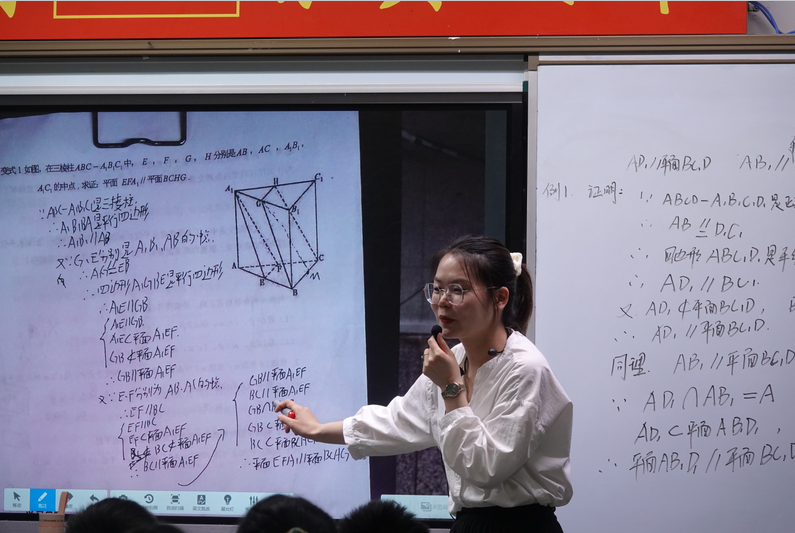 变式1.如图，在三棱柱ABC－A₁B₁C₁中，E，F，G，H分别是AB，AC，A₁B₁，
A₁C₁的中点，求证：平面EFA₁//平面BCHG.
∴A₁B₁BA是平行四边形
∴A₁B₁//AB
又∵G、E分别是A₁B₁、AB的
∴四边形A₁GBE是平行四边形
∴A₁E//GB
A₁E//GB
A₁E⊂平面A₁EF
GB⊄平面A₁EF
∴GB//平面A₁EF
又∵E、F分别为AB、AC的
∴EF//BC
EF//BC
EF⊂平面A₁EF
BC⊄平面A₁EF
∴BC//平面A₁EF
GB//平面A₁EF
BC//平面A₁EF
GB∩
GB⊂
BC⊂平面BCHG
∴平面EFA₁//平面BCHG
A₁
H
C₁
G
B₁
A
F
C
E
B
AD₁//平面BC₁D AB₁//
例1. 证明：∵ABCD－A₁B₁C₁D₁是
∴AB∥D₁C₁
∴四边形ABC₁D₁是平
∴AD₁//BC₁.
又AD₁⊄平面BC₁D，
∴AD₁//平面BC₁D.
同理. AB₁//平面BC₁D
∵AD₁∩AB₁=A
AD₁⊂平面AB₁D₁，
∴平面AB₁D₁//平面BC₁D